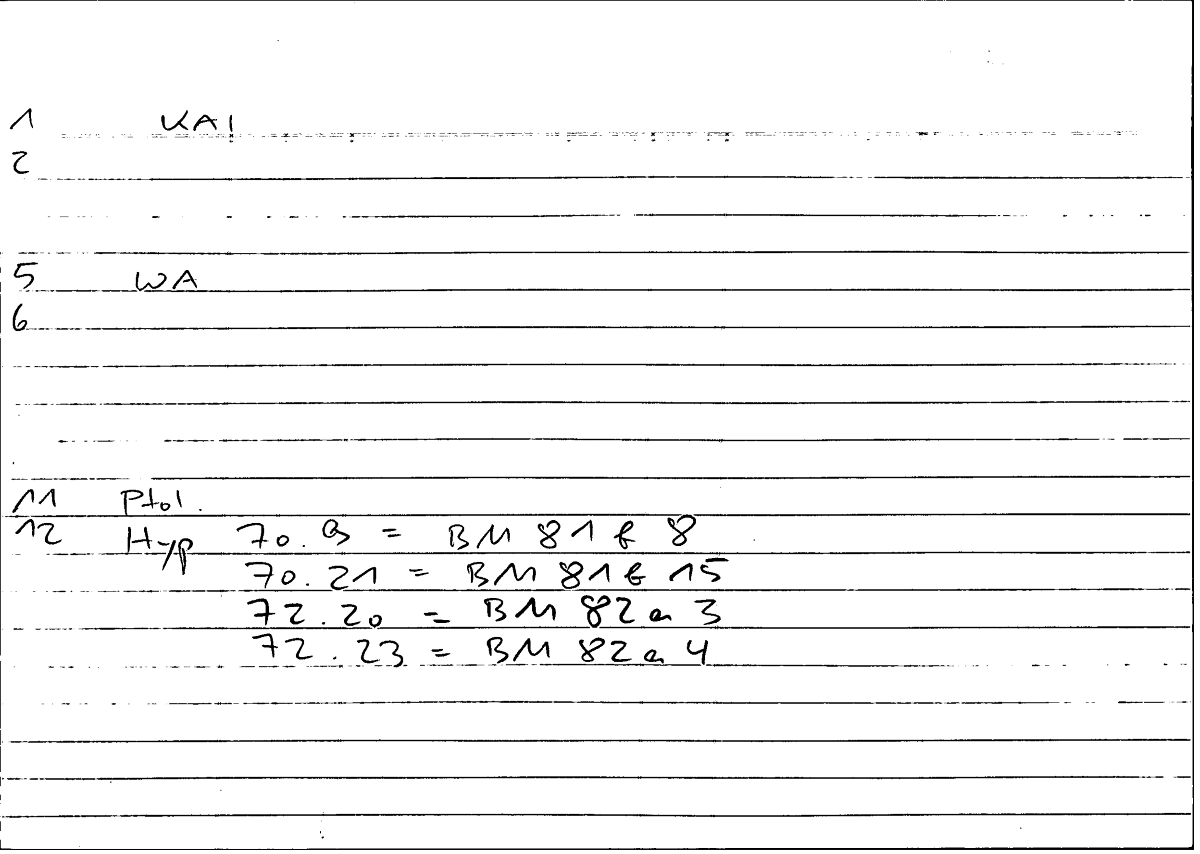 1 KAI
2
5 WA
6
11 Ptol.
12 Hyp 70.9 = BM 81 b 8
70.21 = BM 81 b 15
72.20 = BM 82 a 3
72.23 = BM 82 a 4